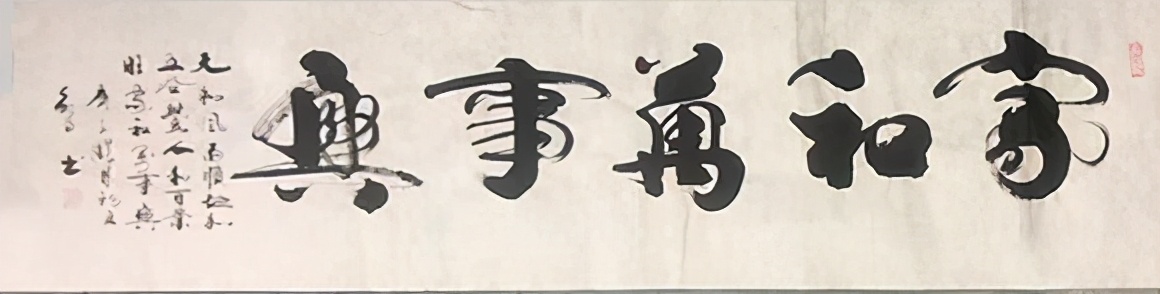 家和萬事興
天和風雨順地和
五谷豐人和百業
旺家和萬事興
書